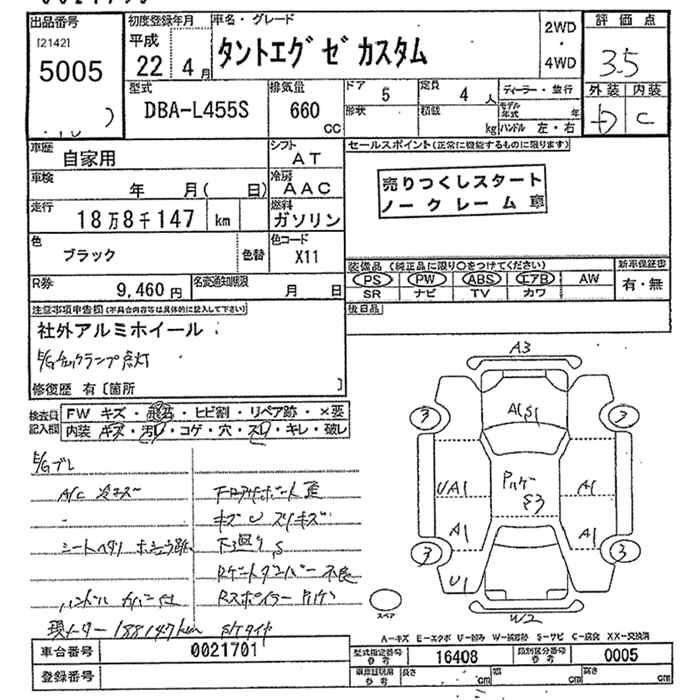 出品番号
[2142]
5005
初度登録年月
平成
22 4月
車名・グレード
タントエグゼカスタム
2WD
・
4WD
評価点
3.5
外装 内装
C
型式
DBA-L455S
排気量
660
CC
ドア 5
定員 4 人
形状
積載 kg
ディーラー・並行
モデル年式 年
ハンドル 左・右
車歴 自家用
シフト AT
車検 年 月( 日)
冷房 AAC
走行 18万8千147 km
燃料 ガソリン
色 ブラック 色替
色コード X11
R券 9,460円
名変通知期限 月 日
セールスポイント(正常に機能するものに限ります)
売りつくしスタート
ノークレーム車
装備品(純正品に限り○をつけてください)
PS PW ABS エアB AW
SR ナビ TV カワ
新車保証書
有・無
後日品
注意事項申告欄(不具合内容等は具体的に記入して下さい)
社外アルミホイール
E/Gチェックランプ点灯
修復歴 有〔箇所 〕
検査員記入欄
FW キズ・飛石・ヒビ割・リペア跡・×要
内装・キズ・汚レ・コゲ・穴・スレ・キレ・破レ
E/Gブレ
A/C 冷エズ
キズUスリキズ
下廻りS
ハンドル カバー
現メーター 188147km
A3
A1 S1
3
3
UA1
A1
A1
A1
3
3
U1
W2
スペア
A-キズ E-エクボ U-凹み W-波形跡 S-サビ C-腐食 XX-交換済
車台番号 0021701
登録番号
型式指定番号 参考 16408
類別区分番号 参考 0005
長さ cm
幅 cm
高さ cm